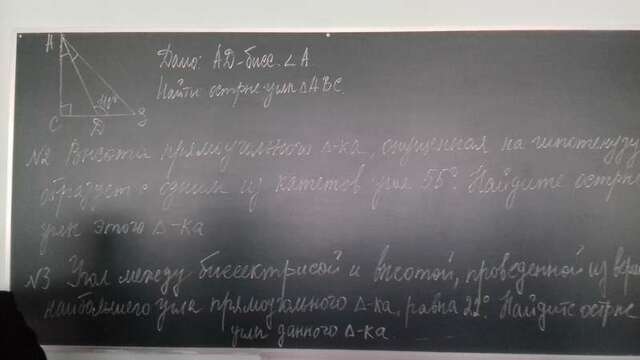 A
Дано: AD-бисс. ∠A
Найти острые углы ΔABC.
110°
C D B
№2 Высота прямоугольного Δ-ка, опущенная на гипотенузу
образует с одним из катетов угол 55°. Найдите острые
углы этого Δ-ка
№3 Угол между биссектрисой и высотой, проведенной из верш
наибольшего угла прямоугольного Δ-ка, равна 22°. Найдите острые
углы данного Δ-ка